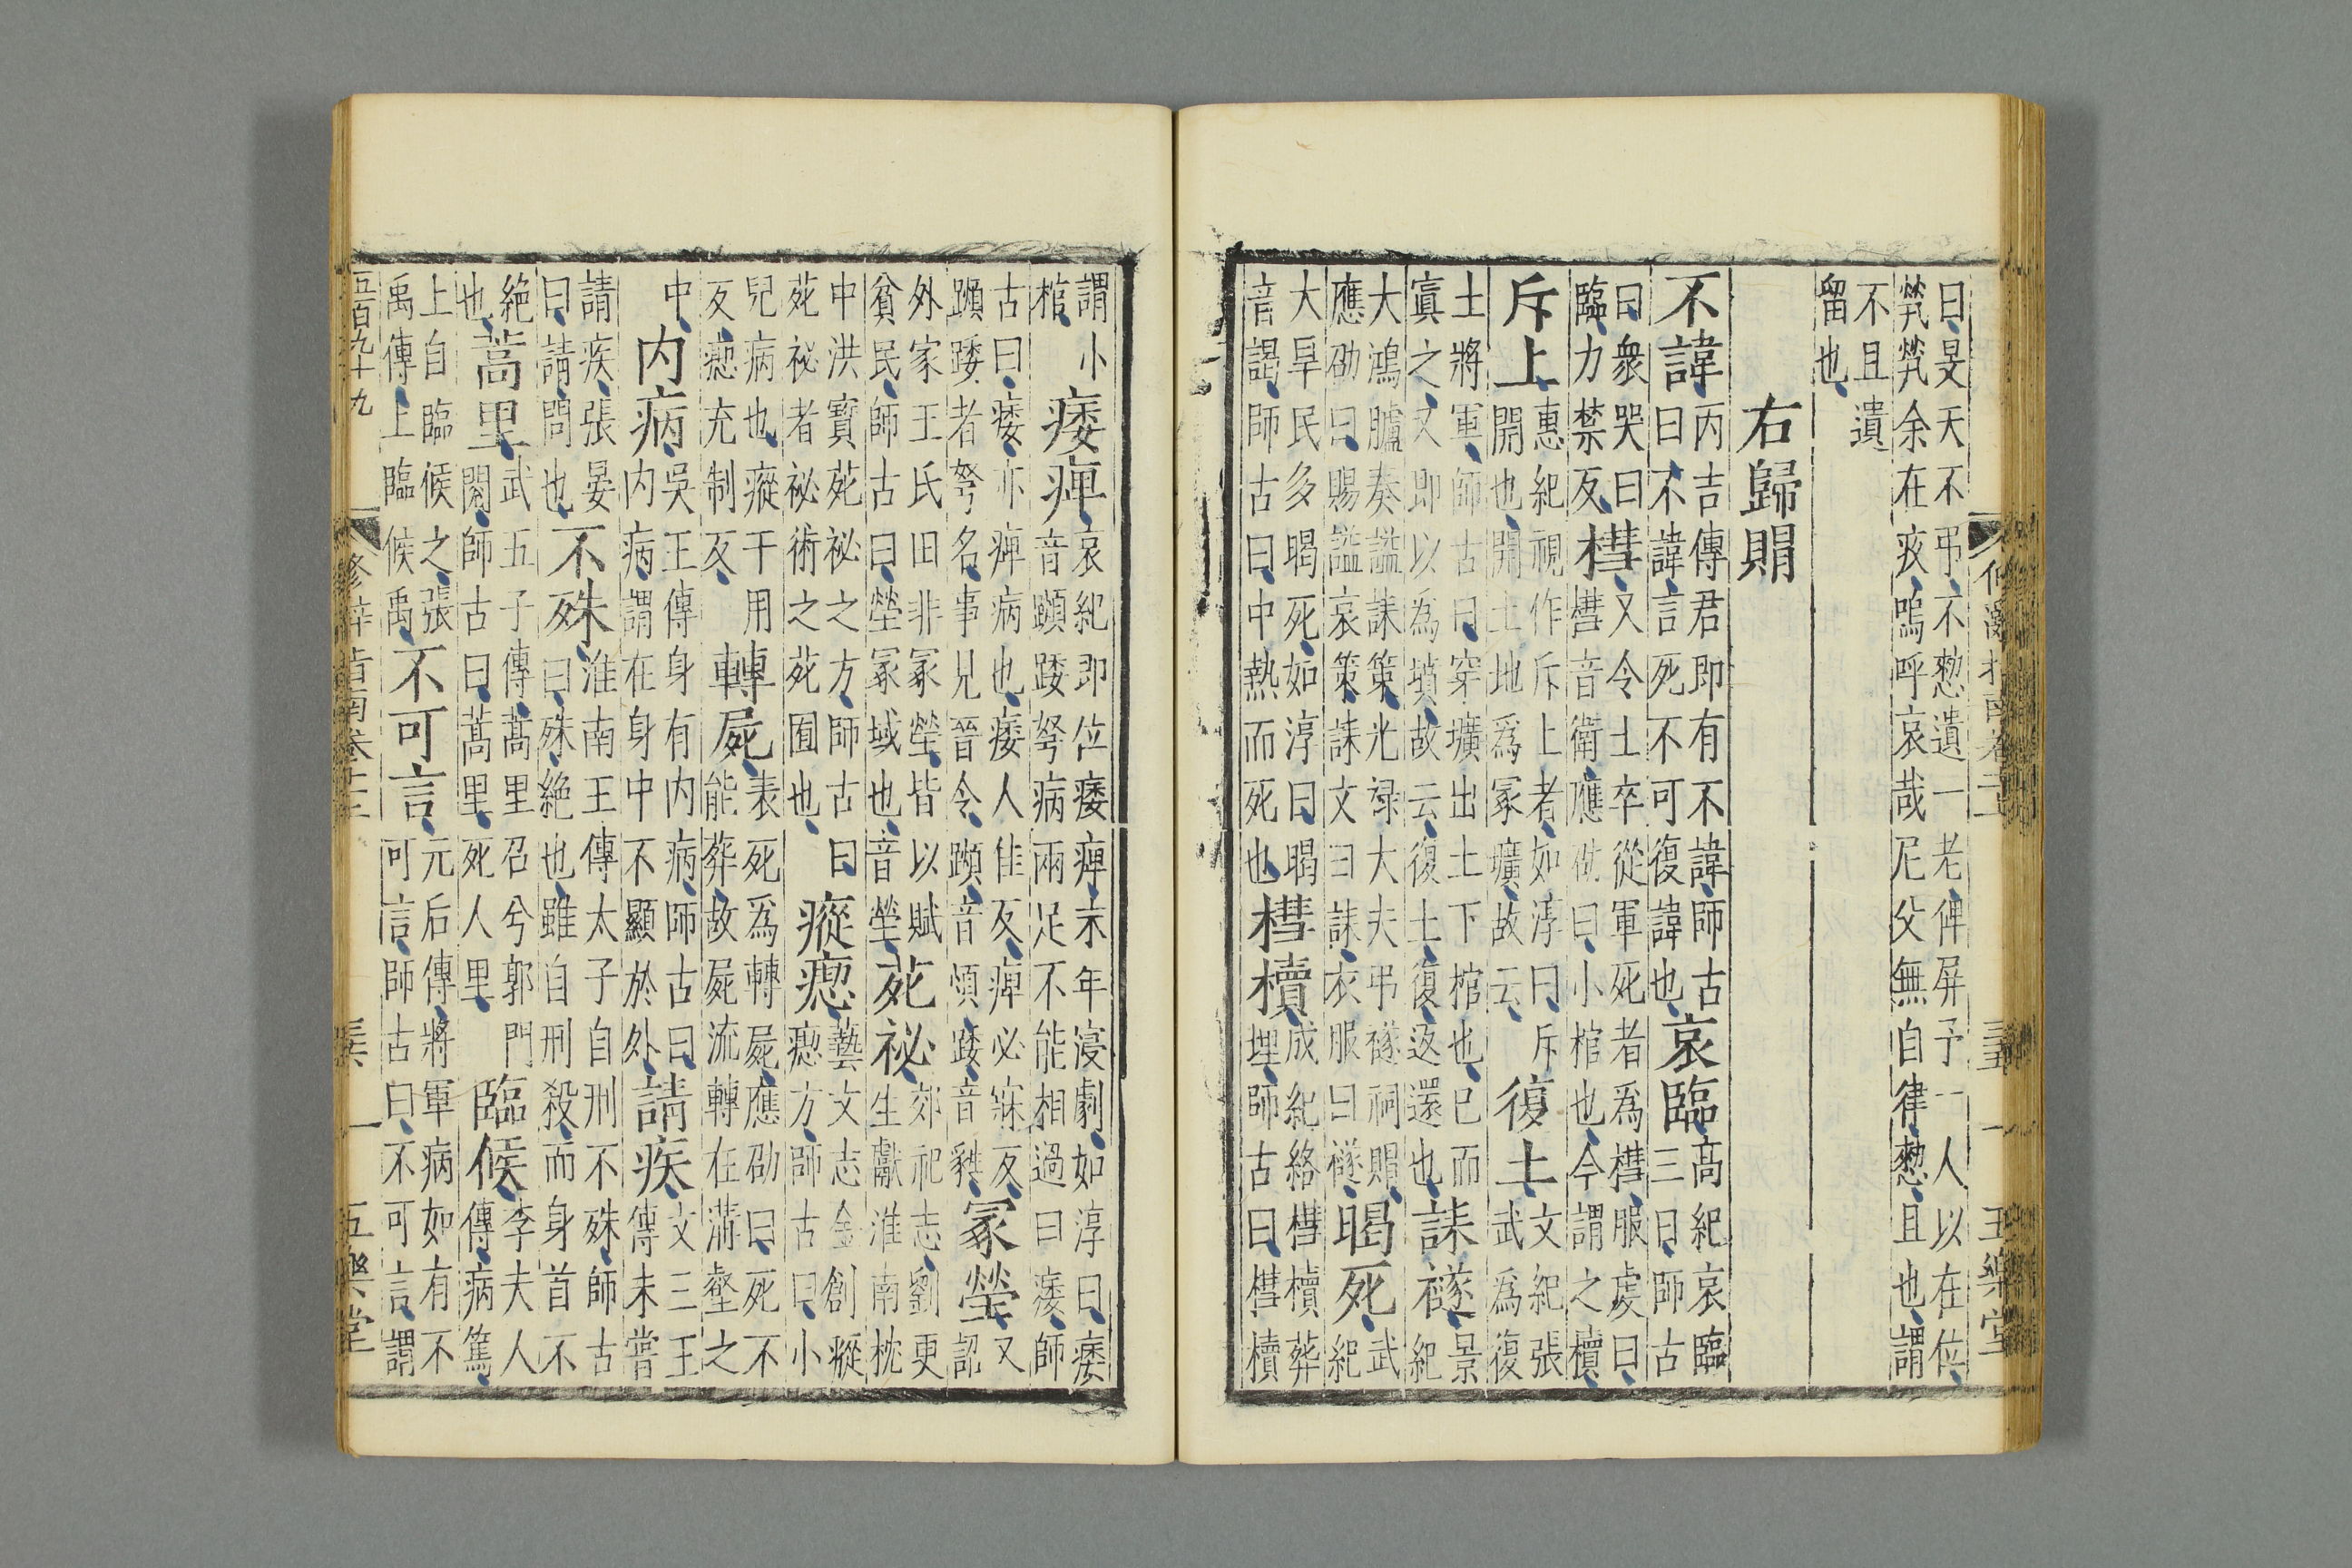 曰旻天不弔不憖遺一老俾屏予一人以在位
煢煢余在疚嗚呼哀哉尼父無自律憖且也謂
不且遺
留也
右歸賵
不諱丙吉傳君即有不諱師古
曰不諱言死不可復諱也哀臨高紀哀臨
三日師古
曰衆哭曰
臨力禁反槥又令士卒從軍死者爲槥服虔曰
槥音衛應劭曰小棺也今謂之櫝
斥上惠紀視作斥上者如淳曰斥
開也開土地爲冢壙故云復土文紀張
武爲復
土將軍師古曰穿壙出土下棺也已而
寘之又即以爲墳故云復土復返還也誄襚景
紀
大鴻臚奏謚誄策光禄大夫弔襚祠賵
應劭曰賜謚哀策誄文曰誄衣服曰襚暍死武
紀
大旱民多暍死如淳曰暍
音謁師古曰中熱而死也槥櫝成紀給槥櫝葬
埋師古曰槥櫝
謂小
棺痿痺哀紀即位痿痺末年寖劇如淳曰痿
音蹞踒弩病兩足不能相過曰痿師
古曰痿亦痺病也痿人佳反痺必寐反又
蹞踒者弩名事見晉令蹞音煩踒音蕤冢塋認
外家王氏田非冢塋皆以賦
貧民師古曰塋冢域也音塋苑祕郊祀志劉更
生獻淮南枕
中洪寶苑祕之方師古曰
苑祕者祕術之苑囿也瘲瘛藝文志金創瘲
瘛方師古曰小
兒病也瘲干用
反瘛充制反轉屍表死爲轉屍應劭曰死不
能葬故屍流轉在溝壑之
中内病吳王傳身有内病師古曰
内病謂在身中不顯於外請疾文三王
傳未嘗
請疾張晏
曰請問也不殊淮南王傳太子自刑不殊師古
曰殊絶也雖自刑殺而身首不
絶
也蒿里武五子傳蒿里召兮郭門
閱師古曰蒿里死人里臨候李夫人
傳病篤
上自臨候之張
禹傳上臨候禹不可言元后傳將軍病如有不
可言師古曰不可言謂
五百九十九
五樂堂